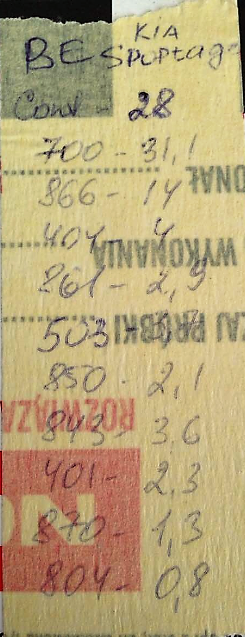 KIA
BE Sportage
Cond - 28
700 - 31,1
866 - 14
ONAŁ
404 - 4
WYKONANIA
861 - 2,9
503 -
AJ PRÓBKI
850 - 2,1
ROZWIĄZA
843 - 3.6
401 - 2,3
870 - 1,3
804 - 0,8